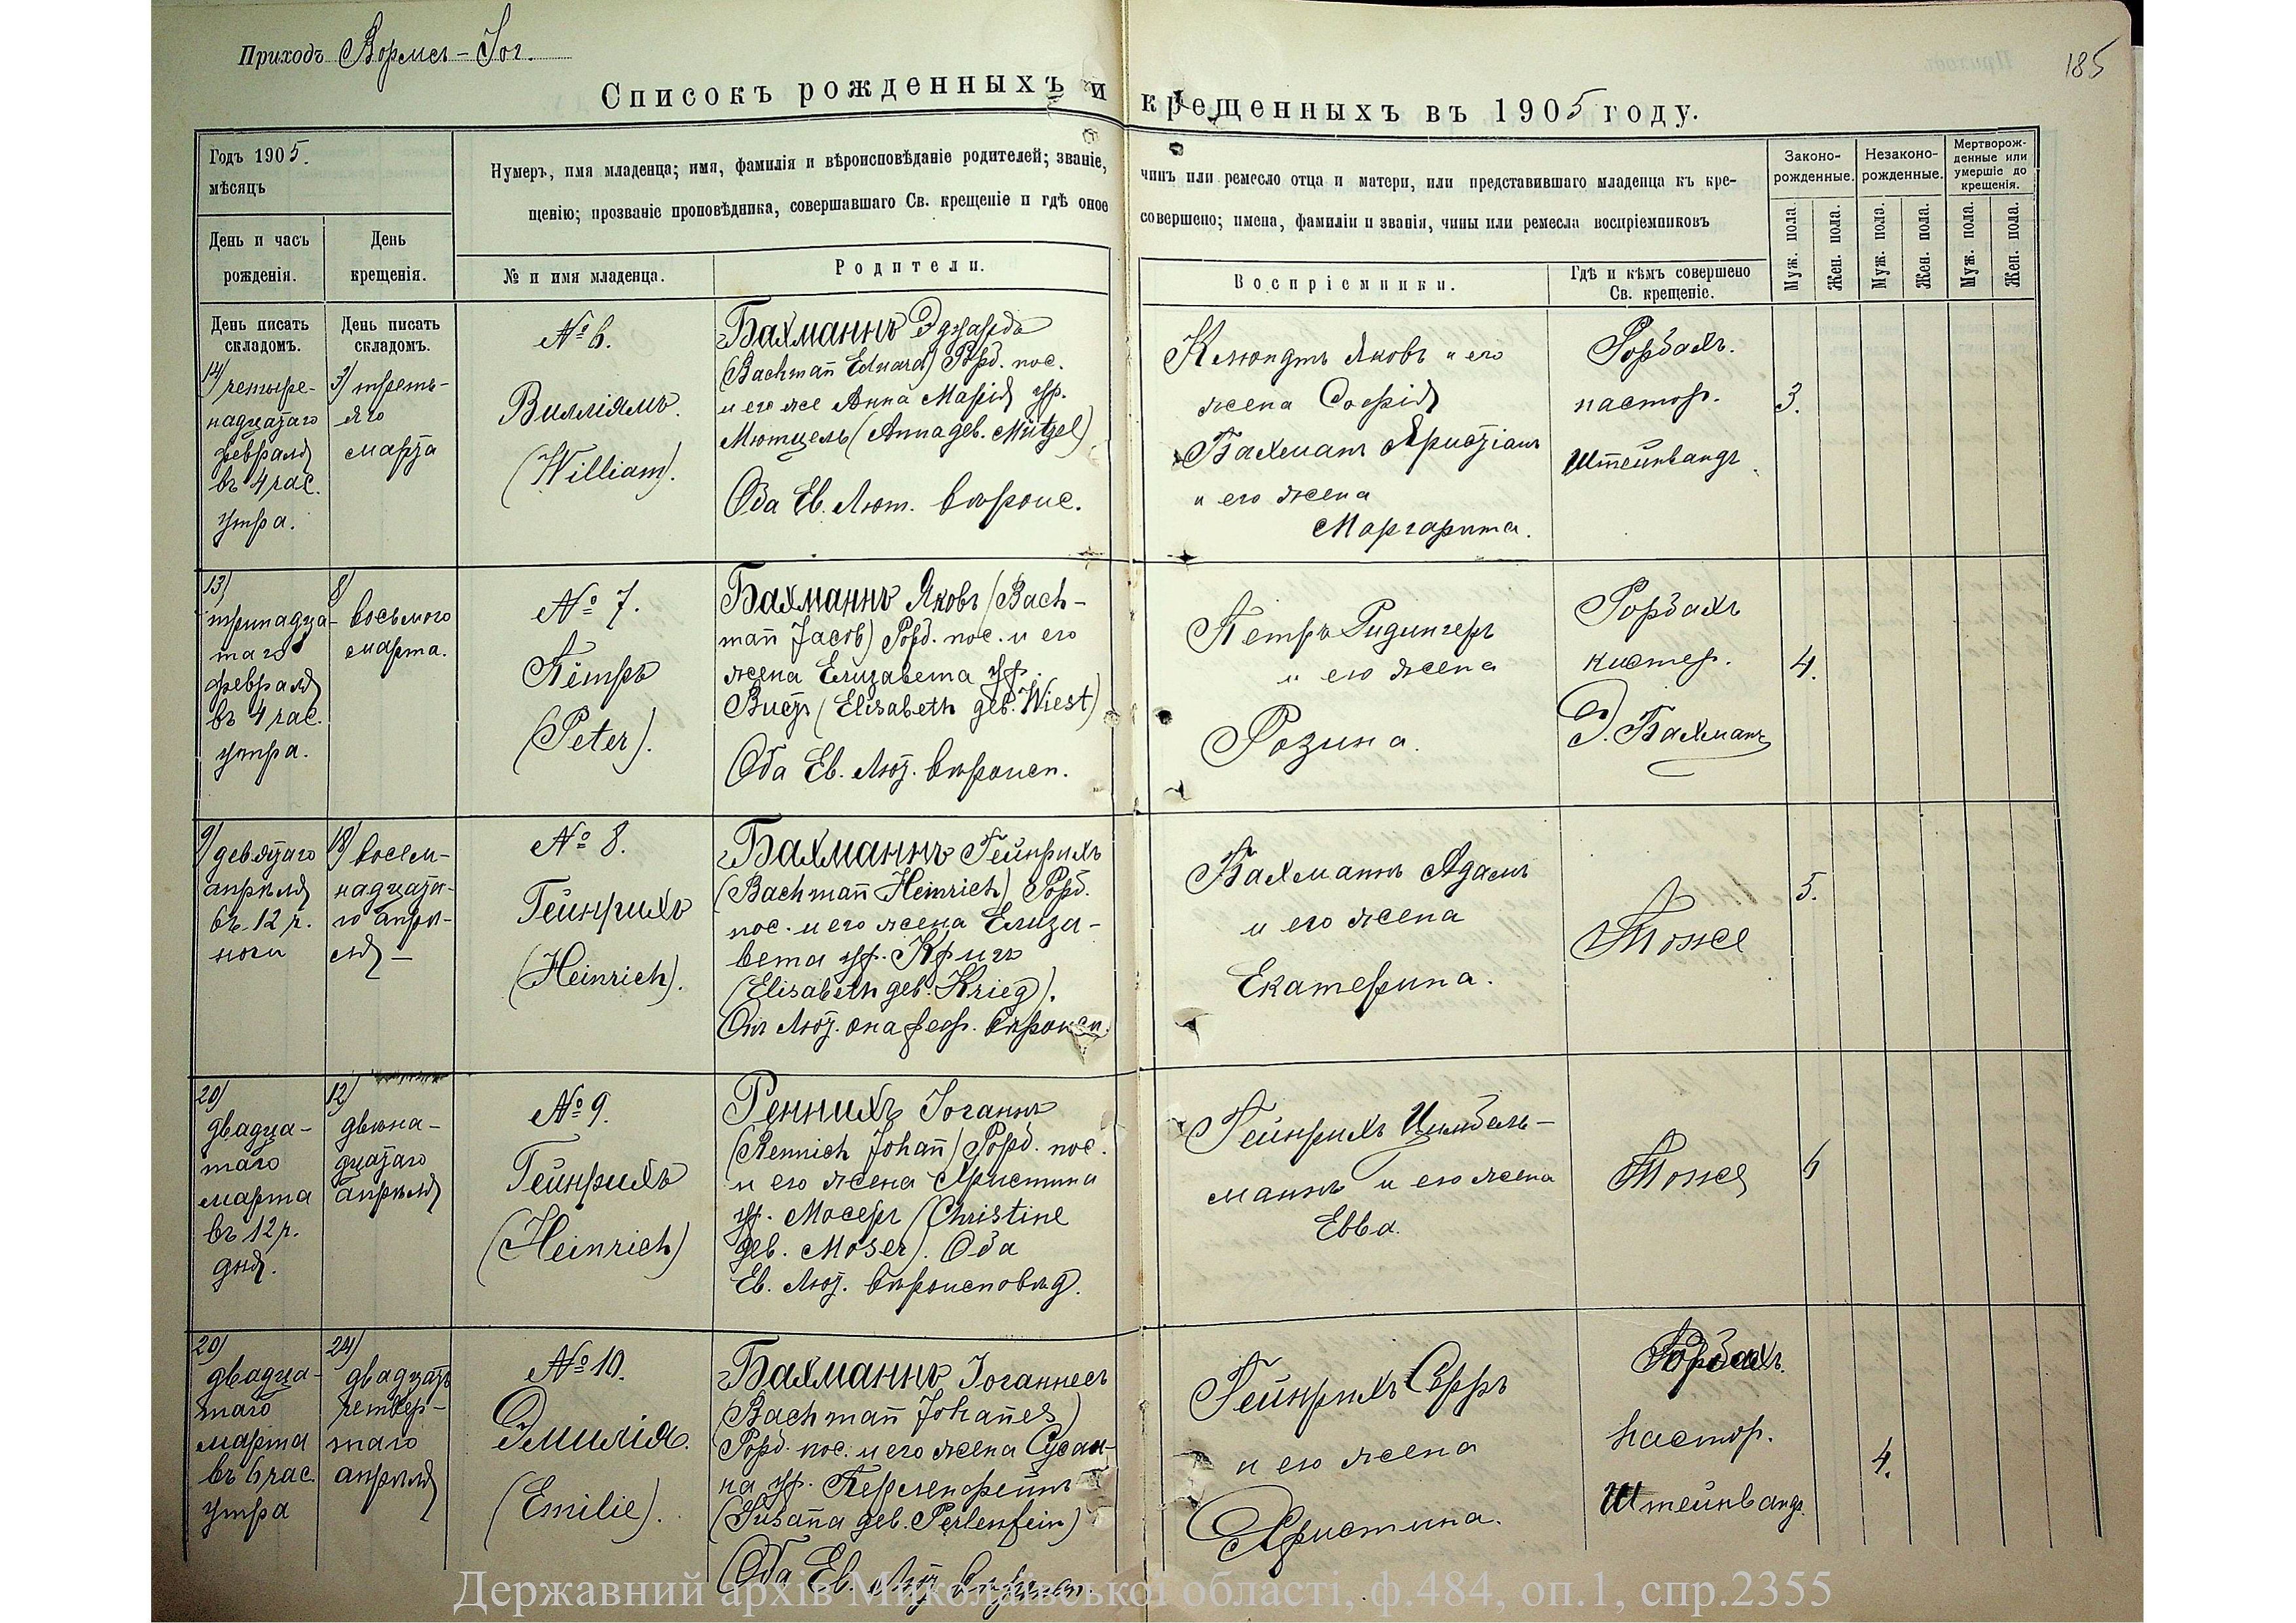 Приходъ Вормсъ-Іог.
185
Списокъ рожденныхъ и крещенныхъ въ 1905 году.
Годъ 1905.
мѣсяцъ
День и часъ
рожденія.
День
крещенія.
Нумеръ, имя младенца; имя, фамилія и вѣроисповѣданіе родителей; званіе, чинъ или ремесло отца и матери, или представившаго младенца къ кре-
щенію; прозваніе проповѣдника, совершавшаго Св. крещеніе и гдѣ оное совершено; имена, фамиліи и званія, чины или ремесла воспріемниковъ
№ и имя младенца.
Родители.
Воспріемники.
Гдѣ и кѣмъ совершено
Св. крещеніе.
Законо-
рожденные.
Незаконо-
рожденные.
Мертворож-
денные или
умершіе до
крещенія.
Муж. пола.
Жен. пола.
Муж. пола.
Жен. пола.
Муж. пола.
Жен. пола.
День писать
складомъ.
День писать
складомъ.
14) четыре-
надцатаго
февраля
въ 4 час.
утра.
3) треть-
яго
марта
№ 6.
Вилліямъ.
(William).
Бахманнъ Эдуардъ
(Bachmañ Eduard) Рорб. пос.
и его же Анна Марія ур.
Мютцель (Anna geb. Mützel)
Оба Ев. Лют. вѣроис.
Клюндтъ Яковъ и его
жена Софія
Бахманъ Христіанъ
и его жена
Маргарита.
Рорбахъ.
пастор.
Штейнвандъ
3.
13)
тринадца-
таго
февраля
въ 4 час.
утра.
8)
восьмого
марта.
№ 7.
Петръ
(Peter).
Бахманнъ Яковъ (Bach-
mañ Jacob) Рорб. пос. и его
жена Елизавета ур.
Вистъ (Elisabeth geb. Wiest)
Оба Ев. Лют. вѣроисп.
Петръ Ридингеръ
и его жена
Розина.
Рорбахъ
кистер.
Э. Бахманъ
4.
9) девятаго
апрѣля
въ 12 ч.
ночи
18) восем-
надцата-
го апрѣ-
ля
№ 8.
Гейнрихъ
(Heinrich).
Бахманнъ Гейнрихъ
(Bachmañ Heinrich) Рорб.
пос. и его жена Елиза-
вета ур. Кригъ
(Elisabeth geb. Krieg).
Онъ Лют. она реф. вѣроисп.
Бахманнъ Адамъ
и его жена
Екатерина.
Тоже
5.
20)
двадца-
таго
марта
въ 12 ч.
дня.
12)
двѣна-
дцатаго
апрѣля
№ 9.
Гейнрихъ
(Heinrich)
Реннихъ Іоганнъ
(Rennich Johañ) Рорб. пос.
и его жена Христина
ур. Мосеръ (Christine
geb. Moser). Оба
Ев. Лют. вѣроисповѣд.
Гейнрихъ Цимбель-
манъ и его жена
Евва.
Тоже
6
20)
двадца-
таго
марта
въ 6 час.
утра
24)
двадцать
четвер-
таго
апрѣля
№ 10.
Эмилія.
(Emilie).
Бахманнъ Іоганнесъ
(Bachmañ Johañes)
Рорб. пос. и его жена Сусан-
на ур. Перленфейнъ
(Susaña geb. Perlenfein)
Оба Ев. Лют. вѣроисп.
Гейнрихъ Серръ
и его жена
Христина.
Рорбахъ.
пастор.
Штейнвандъ.
4.
Державний архів Миколаївської області, ф.484, оп.1, спр.2355